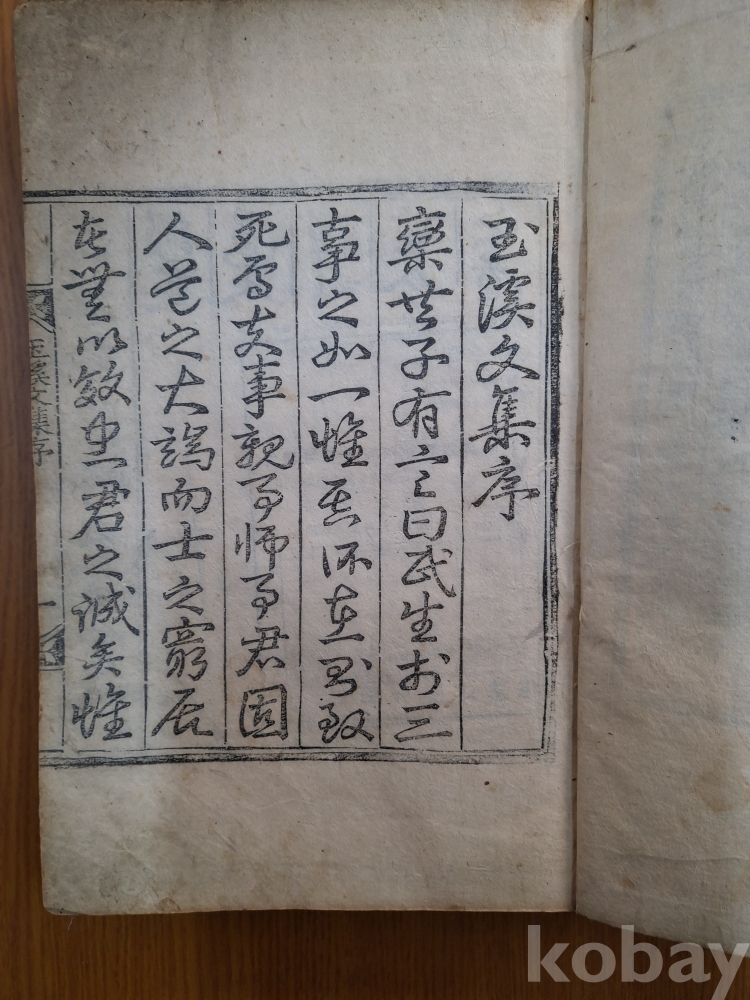 玉溪文集序
欒共子有言曰民生於三
事之如一惟其所在則致
死焉夫事親事師事君固
人道之大端而士之窮居
者無以效忠君之誠矣惟
玉溪文集序
一
kobay